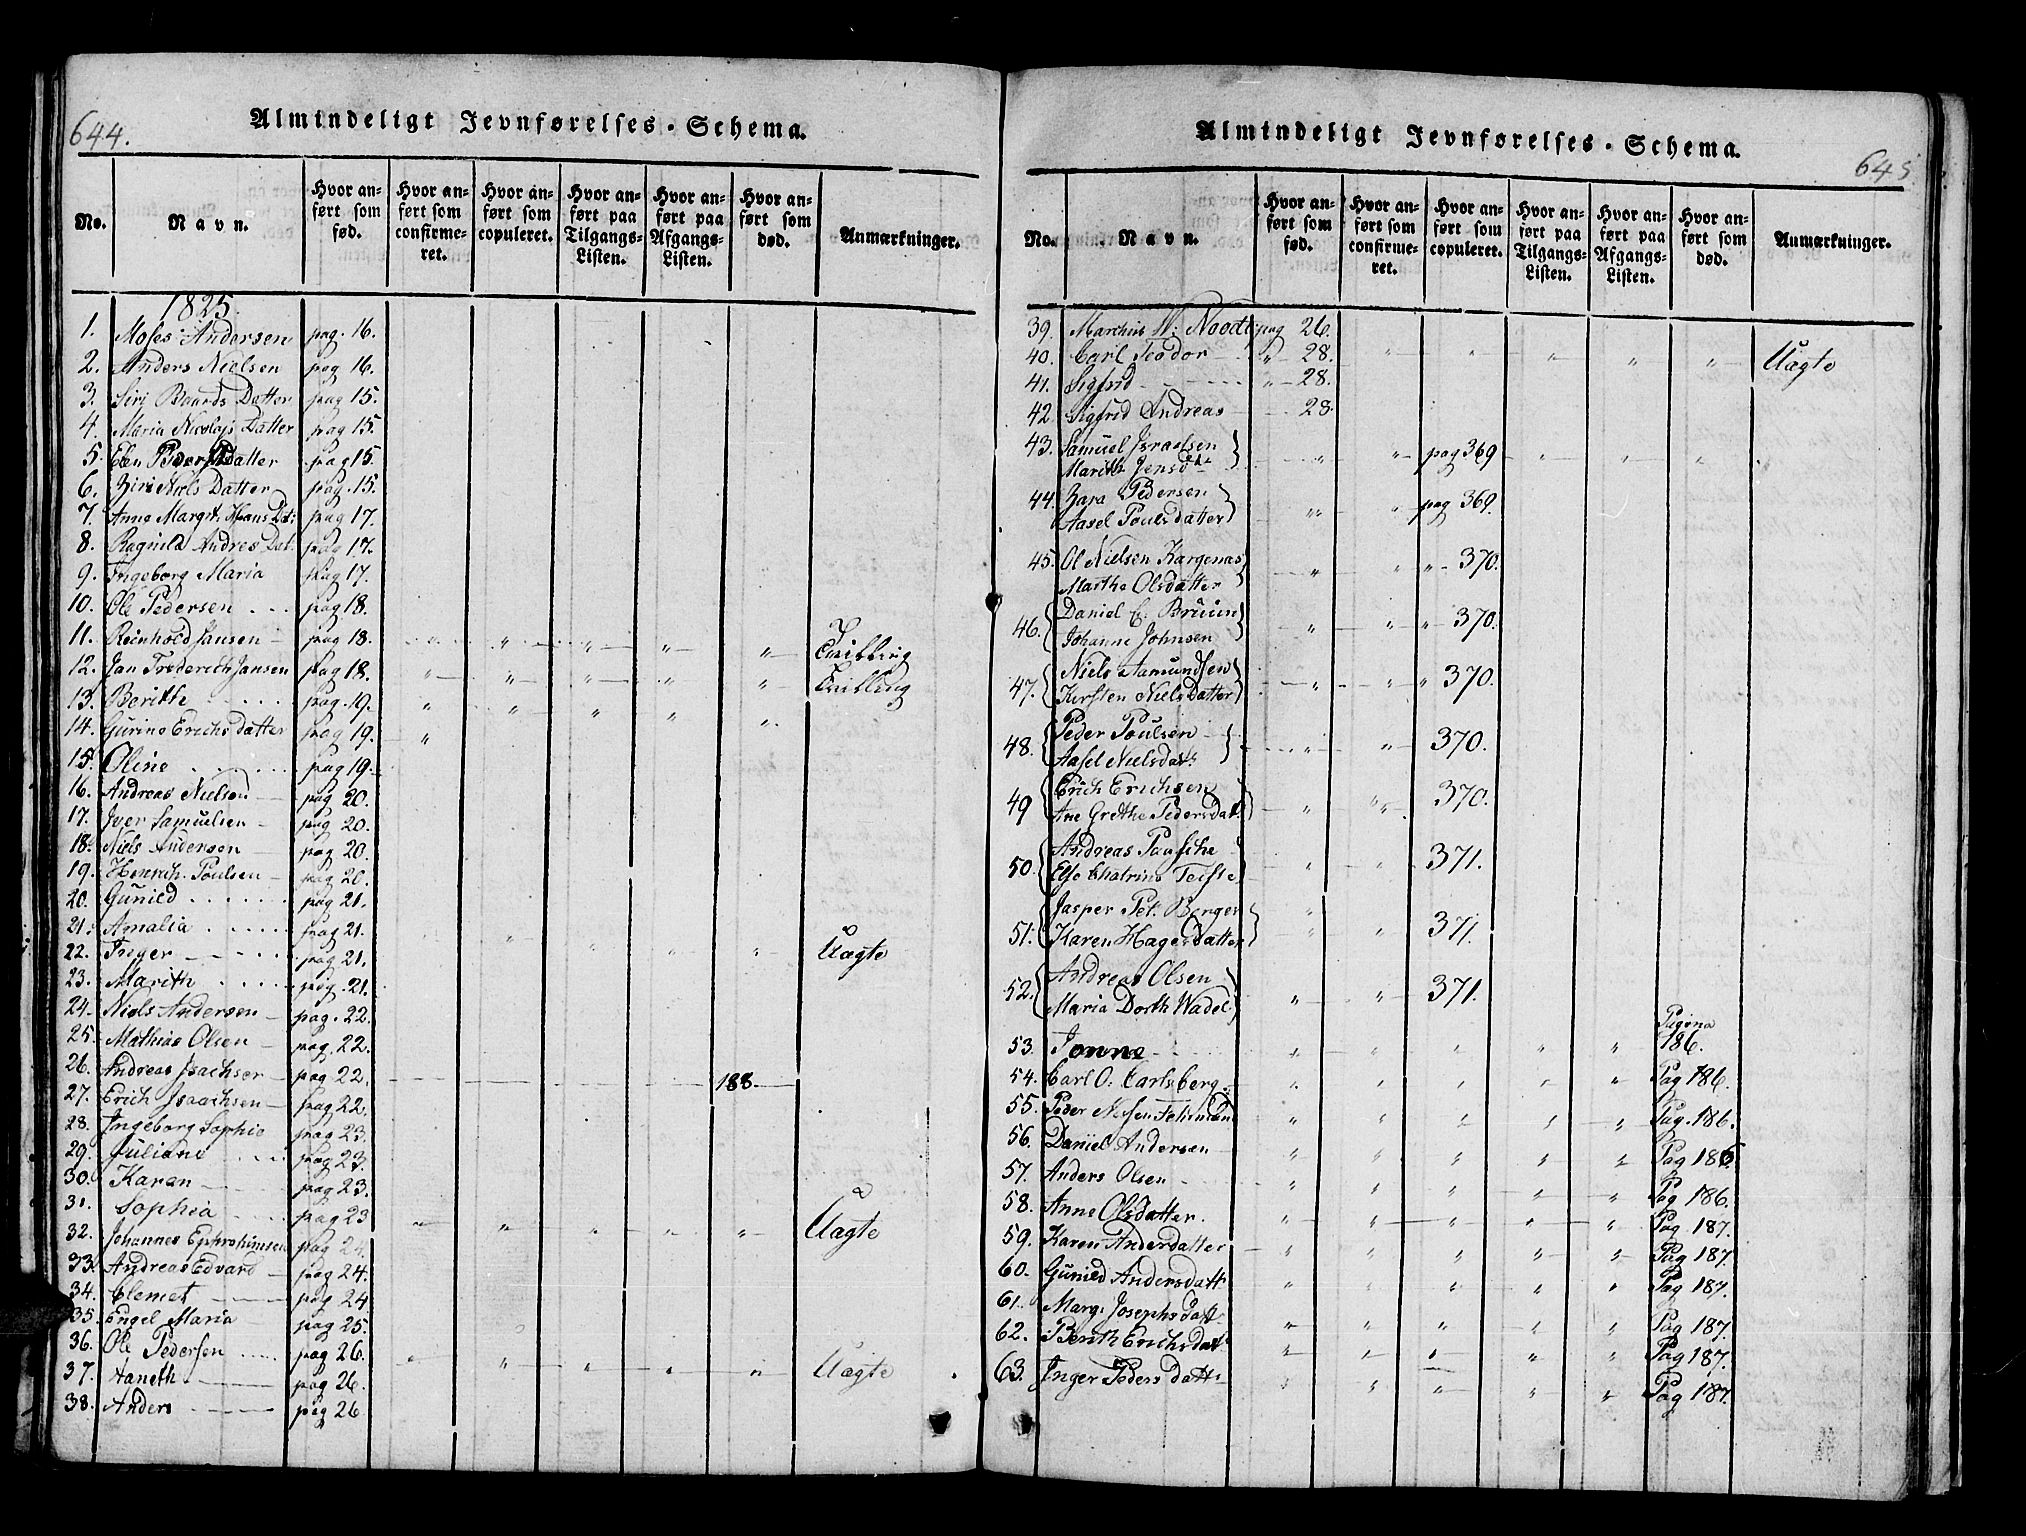 644.
Almindeligt Jevnførelses-Schema.
No. Navn. Hvor anført som fød. Hvor anført som confirmeret. Hvor anført som copuleret. Hvor anført paa Tilgangs-Listen. Hvor anført paa Afgangs-Listen. Hvor anført som død. Anmærkninger.
1825.
1. Moses Andersen pag. 16.
2. Anders Nielsen pag 16.
3. Siri Baards Datter pag 15.
4. Maria Nicolajs Datter pag 15.
5. Elen Peders datter pag 15.
6. Niels Datter pag. 15.
7. Anne Margrt. Hans Dat: pag 17.
8. Ragnild Andres Dat. pag 17.
9. Ingeborg Maria pag 17.
10. Ole Pedersen pag 18.
11. Reinhold Jansen pag 18. " " " " Tvilling
12. Jan Frederich Jansen pag 18. " " " " " Tvilling
13. Beritte pag. 19. " " " " "
14. Gurine Erichs datter pag 19. "
15. Oline pag 19.
16. Andreas Nielsen pag 20.
17. Iver Samuelsen pag 20.
18. Niels Andersen pag 20.
19. Henrich Poulsen pag 20.
20. Gunild pag 21.
21. Amalia pag 21.
22. Inger pag 21. " " " Uægte
23. Marith pag. 21.
24. Niels Andersen pag. 22.
25. Mathias Olsen pag. 22.
26. Andreas Isachsen pag 22. 188.
27. Erich Isaachsen pag 22.
28. Ingeborg Sophie pag 23.
29. Juliane pag 23.
30. Karen pag 23.
31. Sophia pag 23 " " " " " Uægte
32. Johannes Ephrahimsen pag 24.
33. Andreas Edvard pag 24.
34. Clemet pag 24
35. Engel Maria pag 25.
36. Ole Pedersen pag 26.
37. Aaneth pag 26. " " " " " Uægte
38. Anders pag 26
645
Almindeligt Jevnførelses-Schema.
No. Navn. Hvor anført som fød. Hvor anført som confirmeret. Hvor anført som copuleret. Hvor anført paa Tilgangs-Listen. Hvor anført paa Afgangs-Listen. Hvor anført som død. Anmærkninger.
39. Marthin W: Noodt pag 26.
40. Carl Teodor " 28. " " " " " Uægte
41. Sigfrid " 28.
42. Sigfrid Andreas 28.
43. Samuel Israelsen
Marith Jensdtr " " pag 369 " " "
44. Zara Pedersen
Aasel Poulsdatter " " pag 369.
45. Ol Nielsen Kargenæs
Marthe Olsdatter " " " 370.
46. Daniel C. Bruun
Johanne Johnsen " " " 370.
47. Niels Aamundsen
Kirsten Niels Datter " " " 370.
48. Peder Poulsen
Aasel Nielsdatr " " 370.
49 Erich Erichsen
Ane Grethe Pedersdat. " " 370.
50. Andreas Paasche
Else Chatrine Teiste " " 371.
51. Jasper Pet. Berger
Karen Hagersdatter " " 371.
52. Andreas Olsen
Maria Dorth Wadel " " 371.
53. Jonne " " " " " Pagina 186.
54. Carl O: Carlsberg. " " " " " Pag 186.
55. Peder Nilsen " " " " " Pag. 186.
56. Daniel Andersen " " " " " Pag 186
57. Anders Olsen " " " " " Pag 186.
58. Anne Olsdatter. " " " " " Pag 187.
59. Karen Andersdatter " " " " " Pag 187.
60. Gunild Andersdatt " " " " " Pag 187.
61. Marg: Josephs datt " " " " " Pag 187.
62. Berith Erichsdatr " " " " " Pag 187.
63. Inger Peders datt " " " " " Pag 187.